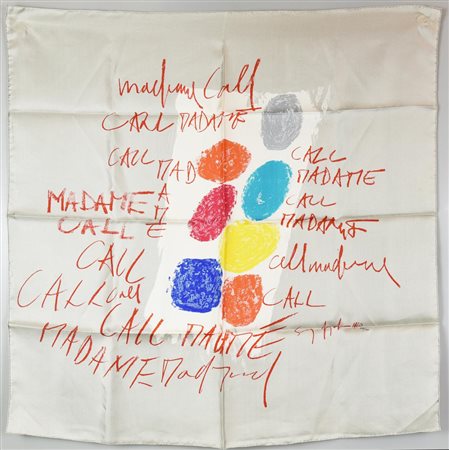 madame Call
CALL MADAME
CALL MAD
A
M
E
CALL
MADAME
CALL
MADAME
MADAME
CALL
CALL
call madame
CALL call
CALL
CALL MADME
MADAME Mad